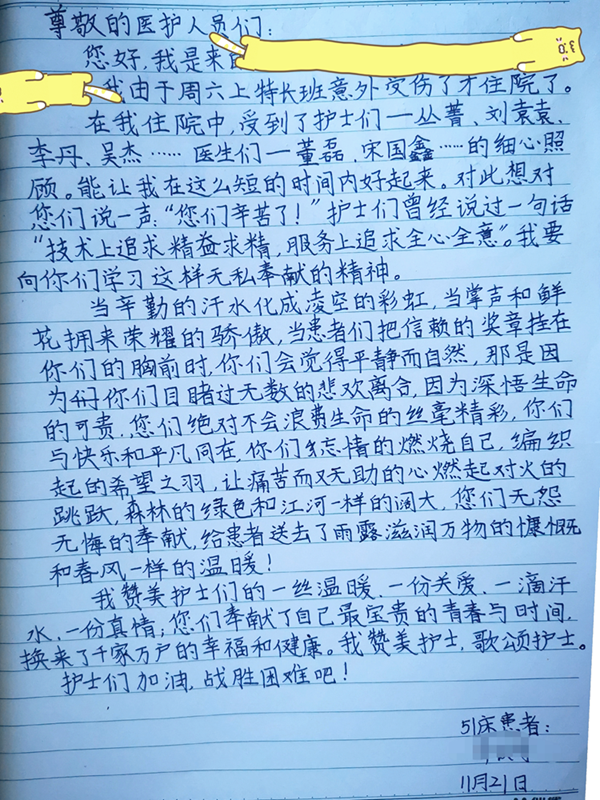 尊敬的医护人员们:
您好,我是来
我由于周六上特长班意外受伤了才住院了。
在我住院中,受到了护士们一丛菁、刘袁袁、
李丹、吴杰……医生们一董磊、宋国鑫……的细心照
顾。能让我在这么短的时间内好起来。对此想对
您们说一声:“您们辛苦了!”护士们曾经说过一句话
“技术上追求精益求精,服务上追求全心全意”。我要
向你们学习这样无私奉献的精神。
当辛勤的汗水化成凌空的彩虹,当掌声和鲜
花拥来荣耀的骄傲,当患者们把信赖的奖章挂在
你们的胸前时,你们会觉得平静而自然,那是因
为你们目睹过无数的悲欢离合,因为深悟生命
的可贵,您们绝对不会浪费生命的丝毫精彩,你们
与快乐和平凡同在,你们忘情的燃烧自己,编织
起的希望之羽,让痛苦而又无助的心燃起对火的
跳跃,森林的绿色和江河一样的阔大,您们无怨
无悔的奉献,给患者送去了雨露滋润万物的慷慨
和春风一样的温暖!
我赞美护士们的一丝温暖、一份关爱、一滴汗
水、一份真情;您们奉献了自己最宝贵的青春与时间,
换来了千家万户的幸福和健康。我赞美护士,歌颂护士。
护士们加油,战胜困难吧!
51床患者:
11月21日